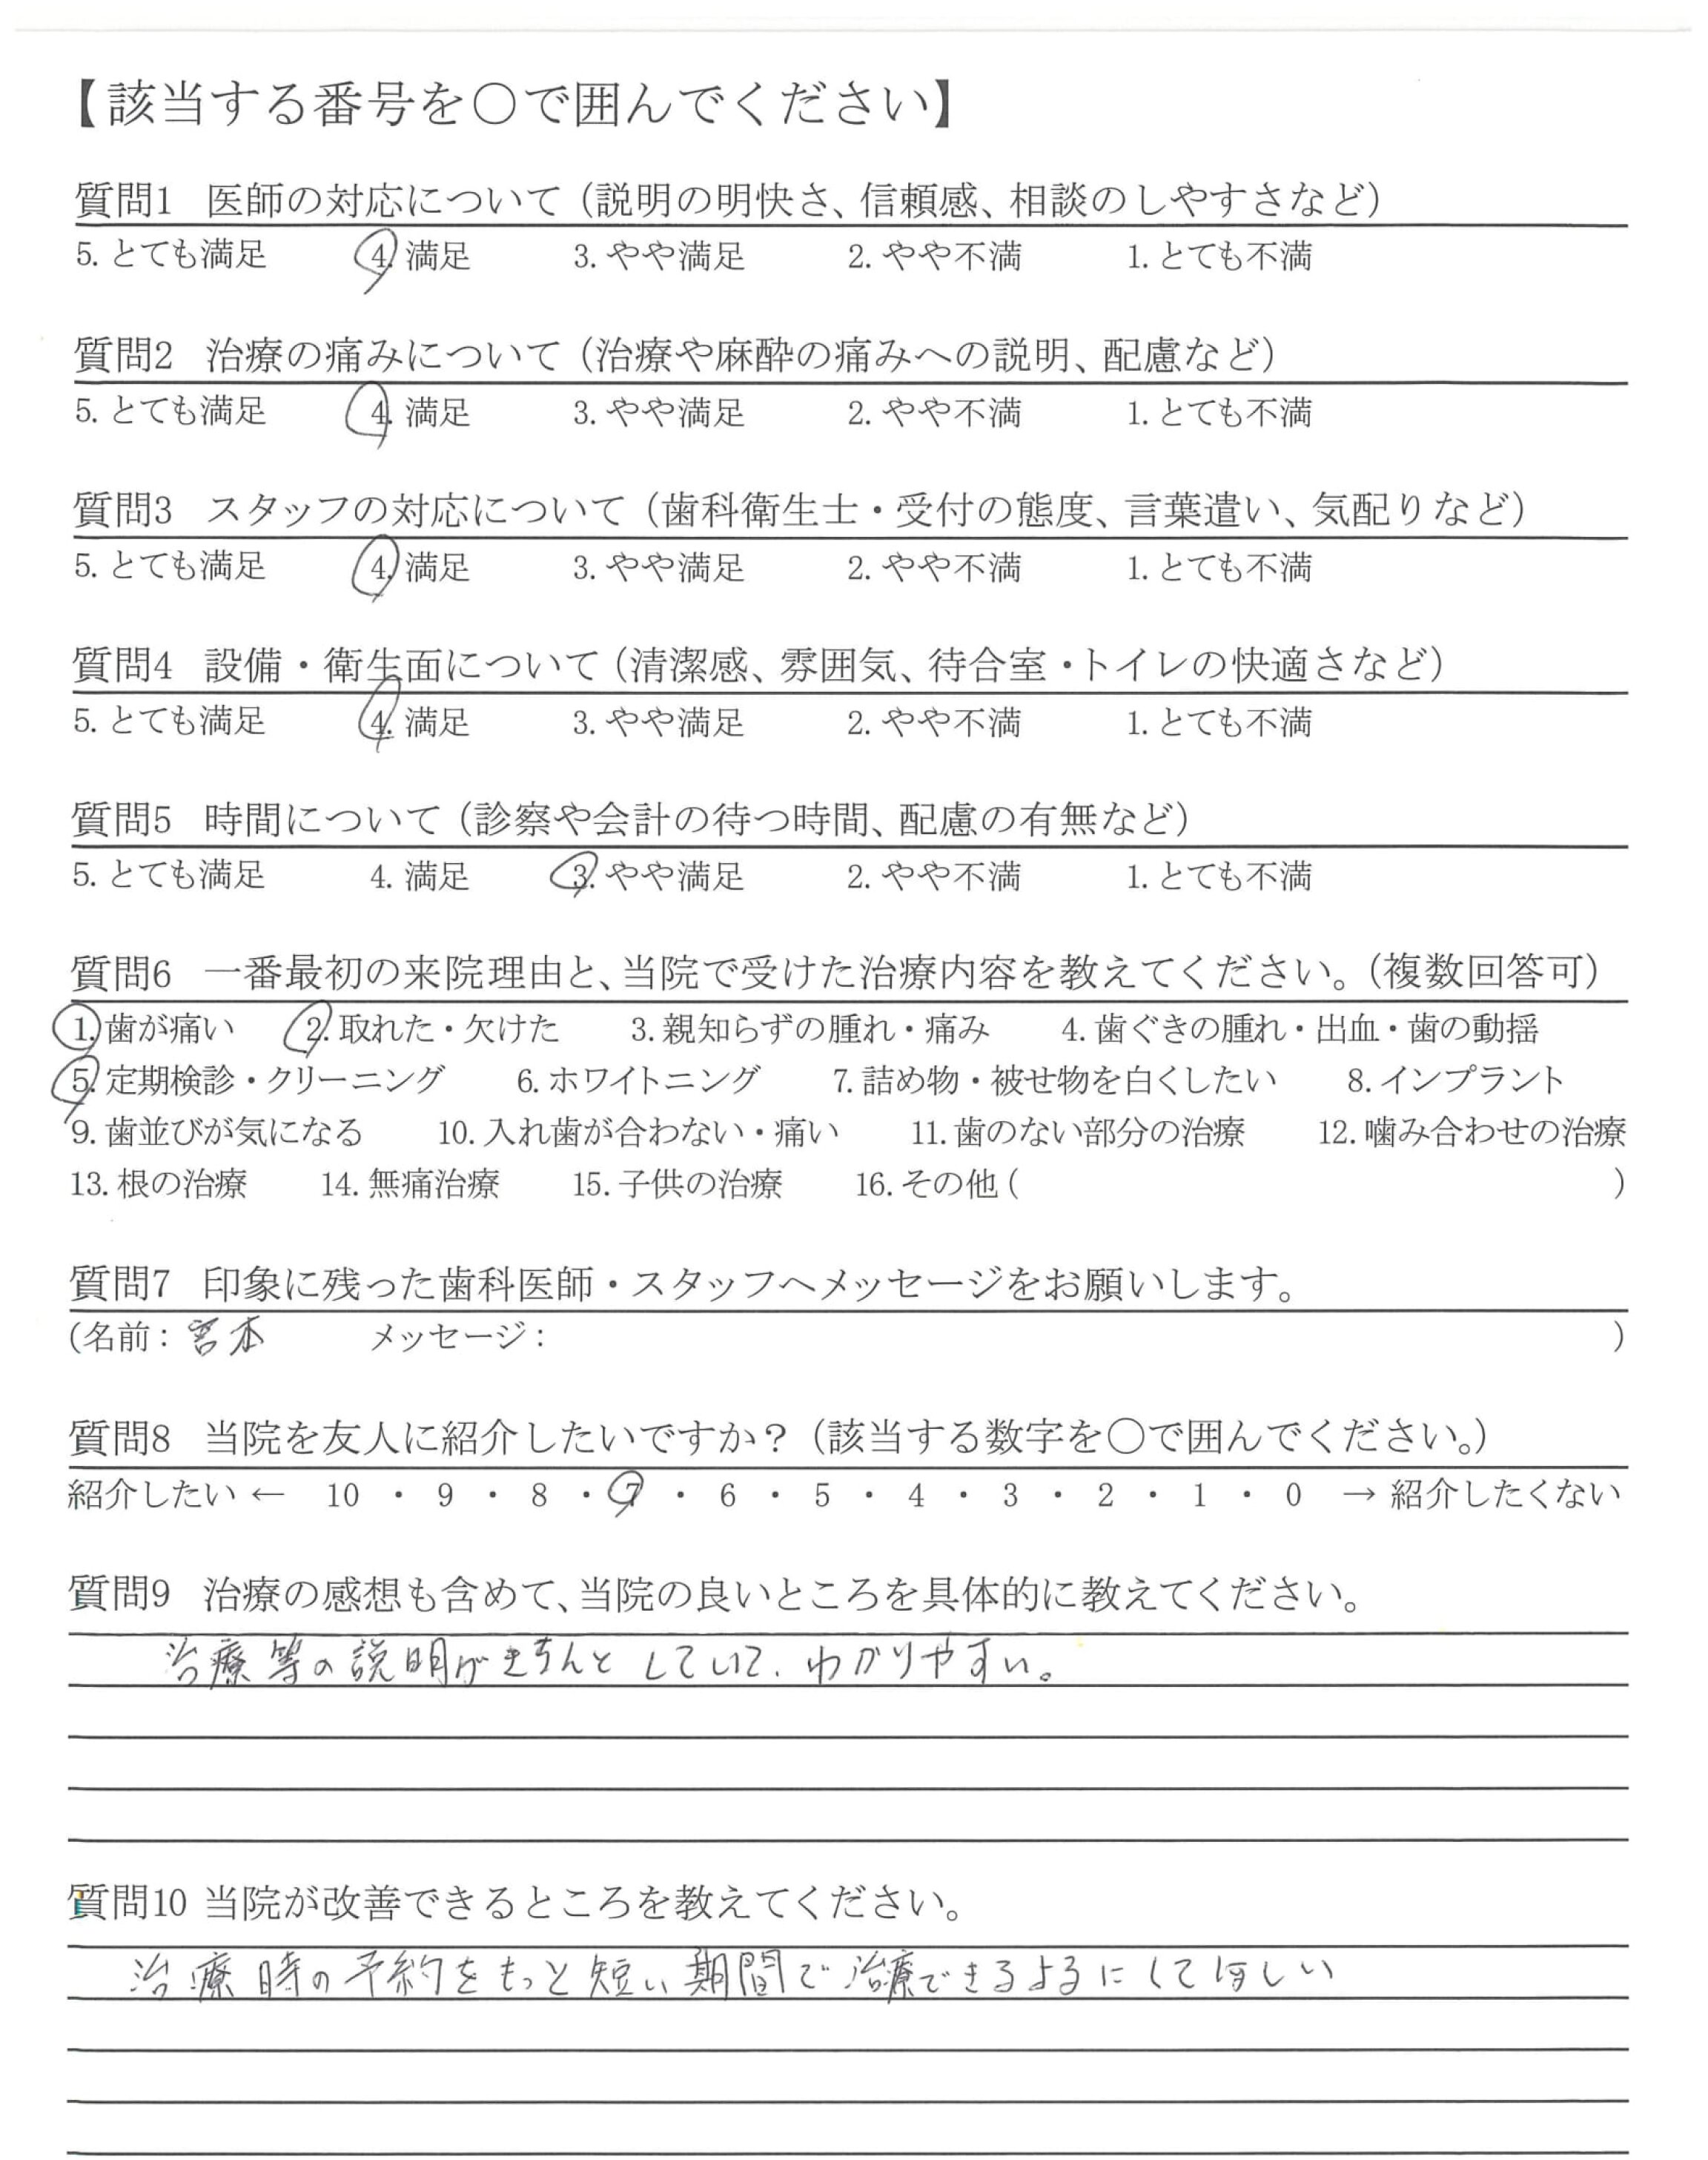 【該当する番号を○で囲んでください】
質問1 医師の対応について（説明の明快さ、信頼感、相談のしやすさなど）
5. とても満足 4. 満足 3. やや満足 2. やや不満 1. とても不満
質問2 治療の痛みについて（治療や麻酔の痛みへの説明、配慮など）
5. とても満足 4. 満足 3. やや満足 2. やや不満 1. とても不満
質問3 スタッフの対応について（歯科衛生士・受付の態度、言葉遣い、気配りなど）
5. とても満足 4. 満足 3. やや満足 2. やや不満 1. とても不満
質問4 設備・衛生面について（清潔感、雰囲気、待合室・トイレの快適さなど）
5. とても満足 4. 満足 3. やや満足 2. やや不満 1. とても不満
質問5 時間について（診察や会計の待つ時間、配慮の有無など）
5. とても満足 4. 満足 3. やや満足 2. やや不満 1. とても不満
質問6 一番最初の来院理由と、当院で受けた治療内容を教えてください。（複数回答可）
1. 歯が痛い 2. 取れた・欠けた 3. 親知らずの腫れ・痛み 4. 歯ぐきの腫れ・出血・歯の動揺
5. 定期検診・クリーニング 6. ホワイトニング 7. 詰め物・被せ物を白くしたい 8. インプラント
9. 歯並びが気になる 10. 入れ歯が合わない・痛い 11. 歯のない部分の治療 12. 噛み合わせの治療
13. 根の治療 14. 無痛治療 15. 子供の治療 16. その他 ( )
質問7 印象に残った歯科医師・スタッフへメッセージをお願いします。
(名前 : 宮本 メッセージ : )
質問8 当院を友人に紹介したいですか？（該当する数字を○で囲んでください。）
紹介したい ← 10 ・ 9 ・ 8 ・ 7 ・ 6 ・ 5 ・ 4 ・ 3 ・ 2 ・ 1 ・ 0 → 紹介したくない
質問9 治療の感想も含めて、当院の良いところを具体的に教えてください。
治療等の説明がきちんとしていて、わかりやすい。
質問10 当院が改善できるところを教えてください。
治療時の予約をもっと短い期間で治療できるようにしてほしい